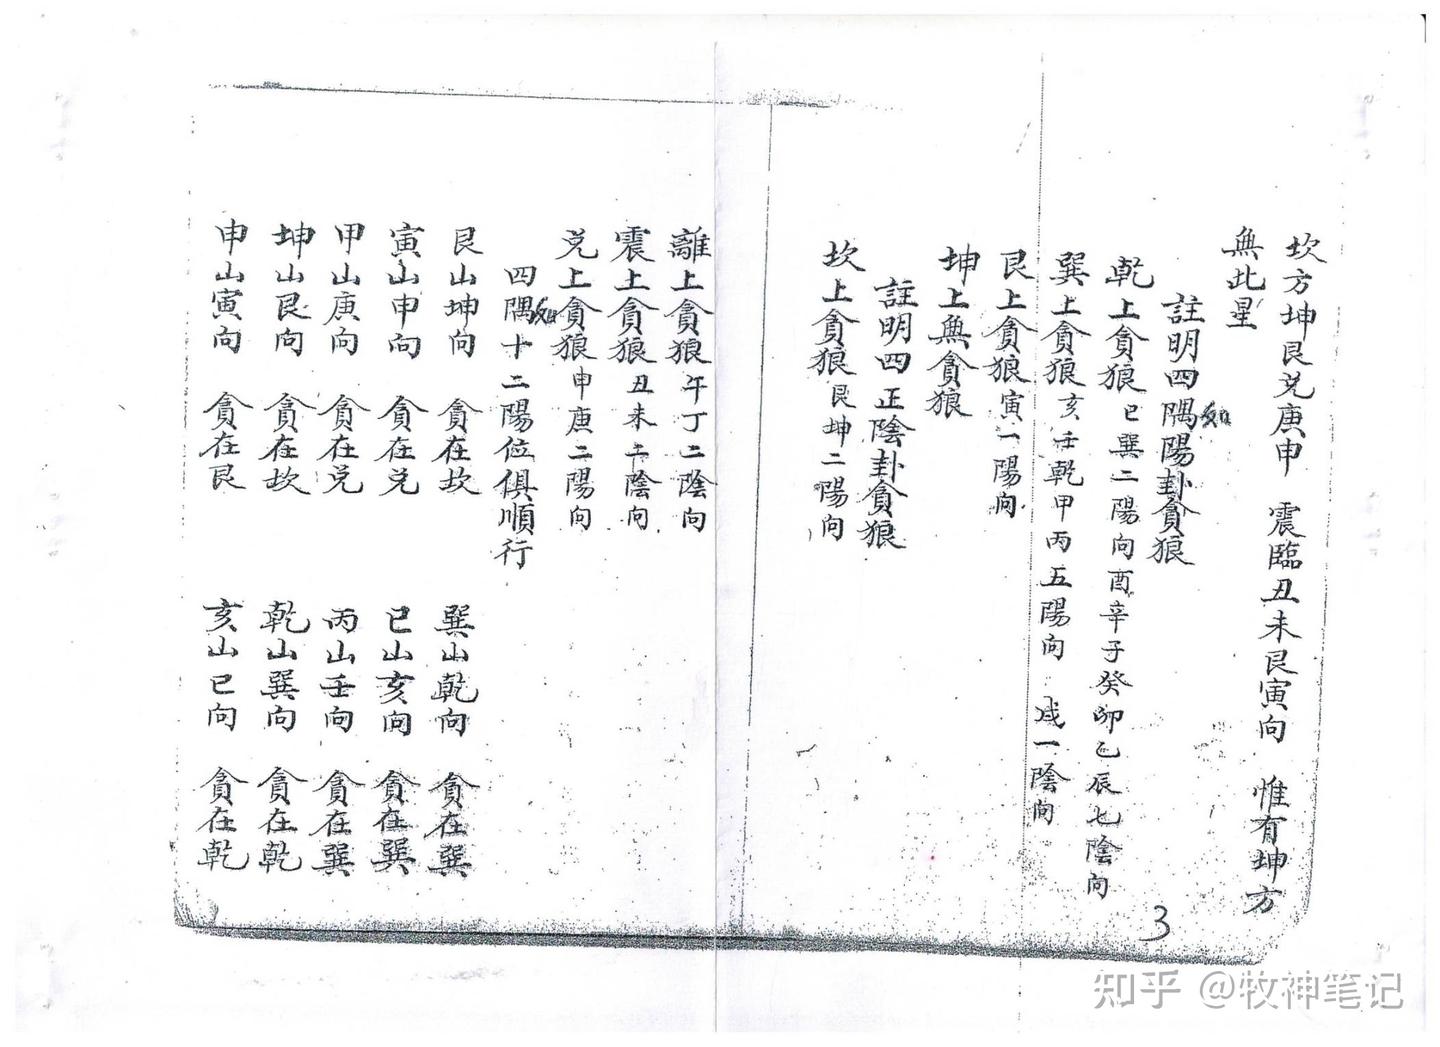 坎方坤艮兑庚申　震臨丑未艮寅向　惟有坤方
無此星
註明四隅陽卦貪狼
如
乾上貪狼巳巽二陽向酉辛子癸卯乙辰七陰向
巽上貪狼亥壬乾甲丙五陽向　戌一陰向
艮上貪狼寅一陽向
坤上無貪狼
註明四正陰卦貪狼
坎上貪狼艮坤二陽向
離上貪狼午丁二陰向
震上貪狼丑未二陰向
兑上貪狼申庚二陽向
四隅十二陽位俱順行
如
艮山坤向　貪在坎　巽山乾向　貪在巽
寅山申向　貪在兑　巳山亥向　貪在巽
甲山庚向　貪在兑　丙山壬向　貪在巽
坤山艮向　貪在坎　乾山巽向　貪在乾
申山寅向　貪在艮　亥山巳向　貪在乾
3
知乎 @牧神笔记